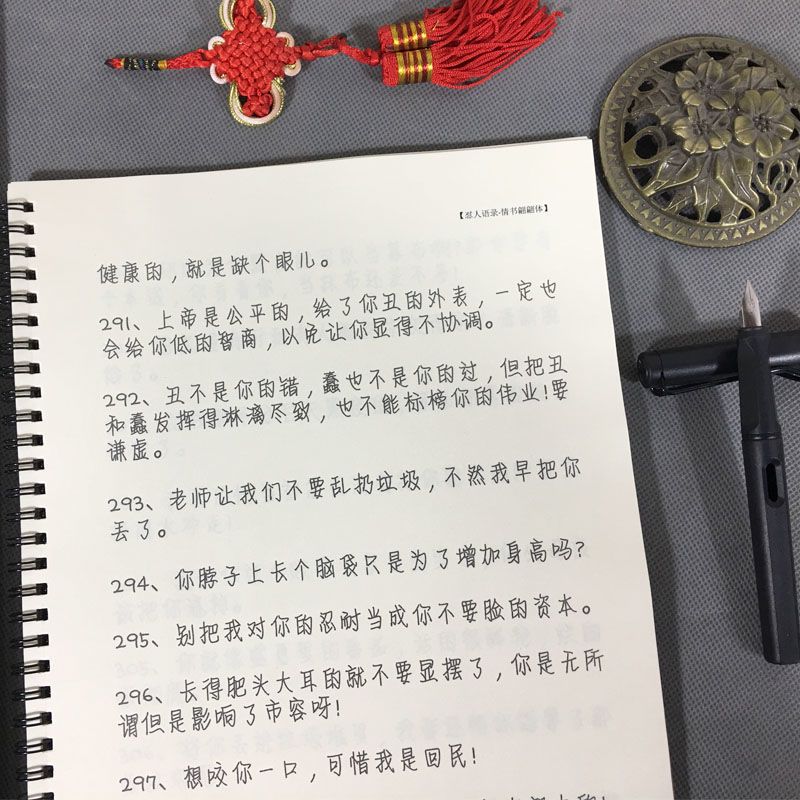 【怼人语录·情书翩翩体】
健康的，就是缺个眼儿。
291、上帝是公平的，给了你丑的外表，一定也
会给你低的智商，以免让你显得不协调。
292、丑不是你的错，蠢也不是你的过，但把丑
和蠢发挥得淋漓尽致，也不能标榜你的伟业！要
谦虚。
293、老师让我们不要乱扔垃圾，不然我早把你
丢了。
294、你脖子上长个脑袋只是为了增加身高吗？
295、别把我对你的忍耐当成你不要脸的资本。
296、长得肥头大耳的就不要显摆了，你是无所
谓但是影响了市容呀！
297、想咬你一口，可惜我是回民！